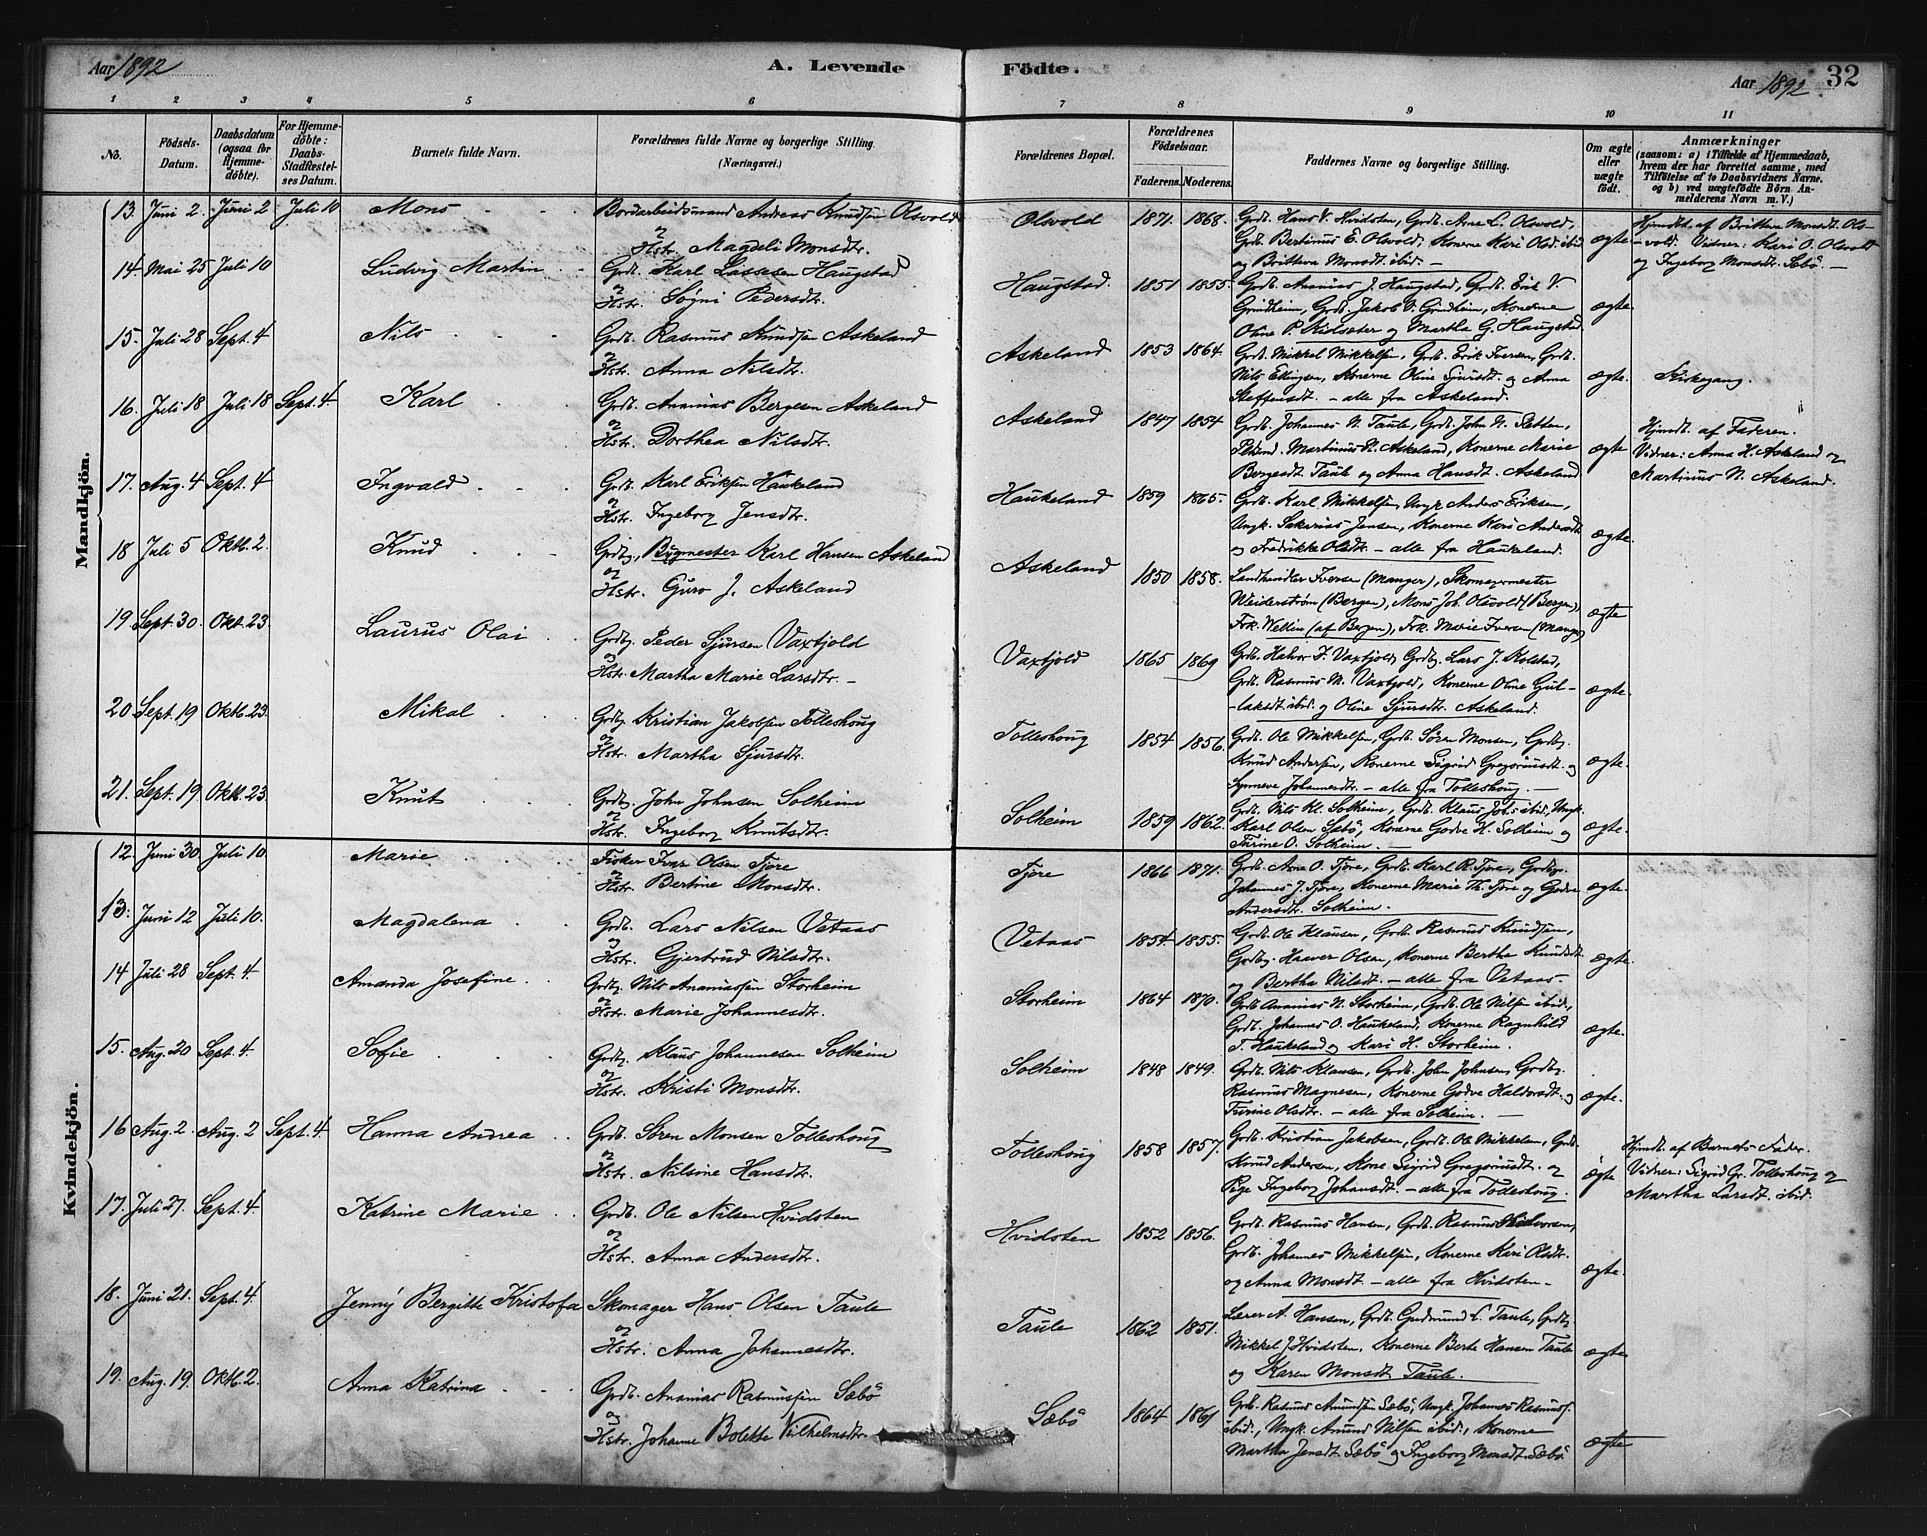 Aar 1892
A. Levende
Födte.
Aar 1892
32
1 2 3 4 5 6 7 8 9 10 11
No.
Födsels-Datum.
Daabsdatum (ogsaa for Hjemme-döbte).
For Hjemme-döbte: Daabs-Stadfæstel-ses Datum.
Barnets fulde Navn.
Forældrenes fulde Navne og borgerlige Stilling.
(Næringsvei.)
Forældrenes Bopæl.
Forældrenes Födselsaar.
Faderens. Moderens.
Faddernes Navne og borgerlige Stilling.
Om ægte eller uægte födt.
Anmærkninger
(saasom: a) i Tilfælde af Hjemmedaab,
hvem der har forrettet samme, med
Tilföielse af to Daabsvidners Navne.
og b) ved uægtefödte Börn An-
melderens Navn m. V.)
Mandkjön.
13. Juni 2. Juni 2 Juli 10 Mons Bordarbeidsmand Andreas Knudsen Olsvold
og
Hstr. Magdeli Monsdtr.
Olsvold 1871. 1868. Grdb. Hans V. Hvidsten, Grdb. Arne L. Olsvold,
Grdb. Bertinus E. Olsvold, Konerne Kari Olsd. ibid
og Britteva Monsdt. ibid. —
ægte
Hjmdt. af Britteva Monsdt. Ols-
vold. Vidner: Kari O. Olsvold
og Ingeborg Monsdtr. Sæbö. —
14. Mai 25 Juli 10 Ludvig Martin Grdb. Karl Lassesen Haugstad
og
Hstr. Sögni Pedersdtr.
Haugstad. 1851 1855. Grdb. Ananias J. Haugstad, Grdb. Erik V.
Grindheim, Grdb. Jakob O. Grindheim, Konerne
Oline P. Kidsæter og Martha G. Haugstad.
ægte.
15. Juli 28 Sept. 4 Nils Grdb. Rasmus Knudsen Askeland
og
Hstr. Anna Nilsdtr.
Askeland 1853 1864. Grdb. Mikkel Mikkelsen, Grdb. Erik Iversen, Grdb.
Nils Ellingsen, Konerne Oline Sjursdt. og Anna
Steffensdt. — alle fra Askeland.
ægte. Kirkegang.
16. Juli 18 Juli 18 Sept. 4. Karl Grdb. Ananias Bergesen Askeland
og
Hstr. Dorthea Nilsdtr.
Askeland 1847 1854 Grdb. Johannes N. Taule, Grdb. John N. Sletten,
Martinus N. Askeland, Konerne Marie
Bergesdt. Taule og Anna Hansdt. Askeland
ægte
Hjmdt. af Faderen.
Vidner: Anna H. Askeland og
Martinus N. Askeland.
17. Aug. 4 Sept. 4 Ingvald Grdb. Karl Eriksen Haukeland
og
Hstr. Ingeborg Jensdtr.
Haukeland 1859 1865. Grdb. Karl Mikkelsen, Ungk. Anders Eriksen,
Ungk. Sakarias Jensen, Konerne Kari Andersdt.
og Fredrikke Olsdtr. — alle fra Haukeland.
ægte.
18 Juli 5 Oktb. 2. Knud Grdbr., Bygmester Karl Hansen Askeland
og
Hstr. Guro J. Askeland
Askeland 1850 1858. Landhandler Iversen (Manger), Skomagermester
Weiderström (Bergen), Mons Joh. Olsvold (Bergen),
Frk. Wellin (af Bergen), Frk. Marie Iversen (Manger)
ægte
19. Sept. 30. Okt. 23. Laurus Olai Grdbr. Peder Sjursen Vaxtjold
og
Hstr. Martha Marie Larsdtr. —
Vaxtjold 1865 1869 Grdb. Halvor F. Vaxtjold, Grdbr. Lars J. Kolstad,
Grdb. Rasmus M. Vaxtjold, Konerne Oline Gul-
laksdt. ibid. og Oline Sjursdtr. Askeland.
ægte.
20. Sept. 19 Oktb. 23. Mikal Grdbr. Kristian Jakobsen Tolleshoug
og
Hstr. Martha Sjursdtr.
Tolleshoug 1854 1856. Grdb. Ole Mikkelsen, Grdb. Sören Monsen, Grdbr.
Knud Andersen, Konerne Sigrid Gregoriusdt. og
Synneve Johannesdtr. — alle fra Tolleshoug. —
ægte.
21. Sept. 19 Oktb. 23 Knut Grdbr. John Johnsen Solheim
og
Hstr. Ingeborg Knutsdtr.
Solheim 1859 1862. Grdb. Nils Kl. Solheim, Grdb. Klaus Joh.s ibid., Ungk.
Karl Olsen Sæbö, Konerne Godve H. Solheim og
Turine O. Solheim. —
ægte.
Kvindekjön.
12. Juni 30. Juli 10. Marie Fisker Ivar Olsen Fjere
og
Hstr. Bertine Monsdtr.
Fjere 1866 1871. Grdb. Arne O. Fjöre, Grdb. Karl R. Fjöre, Grdbr.
Johannes J. Fjöre, Konerne Marie Th. Fjöre og Godve
Andersdtr. Solheim.
ægte.
13. Juni 12 Juli 10. Magdalena Grdb. Lars Nilsen Vetaas
og
Hstr. Gjertrud Nilsdtr.
Vetaas 1854. 1855. Grdb. Ole Klausen, Grdb. Rasmus Knudsen,
Grdbr. Haaver Olsen, Konerne Bertha Knudsdt.
og Bertha Nilsdt. — alle fra Vetaas.
ægte.
14 Juli 28 Sept. 4. Amanda Josefine. Grdbr. Nils Ananiassen Storheim
og
Hstr. Marie Johannesdtr.
Storheim 1864 1870. Grdb. Ananias N. Storheim, Grdb. Ole Nilsen ibid.,
Grdb. Johannes O. Haukeland, Konerne Ragnhild
T. Haukeland og Kari H. Storheim.
ægte.
15. Aug. 20 Sept. 4 Sofie Grdbr. Klaus Johannesen Solheim
og
Hstr. Kristi Monsdtr.
Solheim 1848 1849. Grdb. Nils Klausen, Grdb. John Johnsen, Grdbr.
Rasmus Magnesen, Konerne Godve Haldorsdt. og
Turine Olsdtr. — alle fra Solheim. —
ægte.
16 Aug. 2. Aug. 2 Sept. 4. Hanna Andrea Grdb. Sören Monsen Tolleshoug
og
Hstr. Nilsine Hansdtr.
Tolleshoug 1858 1857. Grdb. Kristian Jakobsen, Grdb. Ole Mikkelsen, Grdb.
Knud Andersen, Kone Sigrid Gregoriusdt. og
Pige Ingeborg Johansdt. — alle fra Tolleshoug.
ægte
Hjmdt. af Barnets Fader.
Vidner: Sigrid Gr. Tolleshoug og
Martha Larsdt. ibid.
17. Juli 27. Sept. 4. Katrine Marie Grdb. Ole Nilsen Hvidsten
og
Hstr. Anna Andersdtr.
Hvidsten 1852 1856. Grdb. Rasmus Hansen, Grdb. Rasmus Halvorsen,
Grdb. Johannes Mikkelsen, Konerne Kari Olsdtr.
og Anna Monsdt. — alle fra Hvidsten —
ægte.
18. Juni 21. Sept. 4. Jenny Bergitte Kristofa Skomager Hans Olsen Taule
og
Hstr. Anna Johannesdtr.
Taule 1862 1851. Lærer A. Hansen, Grdb. Gudmund L. Taule, Grdbr.
Mikkel J. Hvidsten, Konerne Berte Hansen Taule
og Karen Monsdt. Taule.
ægte
19. Aug. 19. Oktb. 2. Anna Katrina Grdb. Ananias Rasmussen Sæbö
og
Hstr. Johanne Bolette Vilhelmsdtr.
Sæbö 1864 1861 Grdb. Rasmus Amundsen Sæbö, Ungk. Johannes Rasmuss.
ibid., Ungk. Amund Nilsen ibid., Konerne
Martha Jensdt. Sæbö og Ingeborg Monsdt. Sæbö
ægte